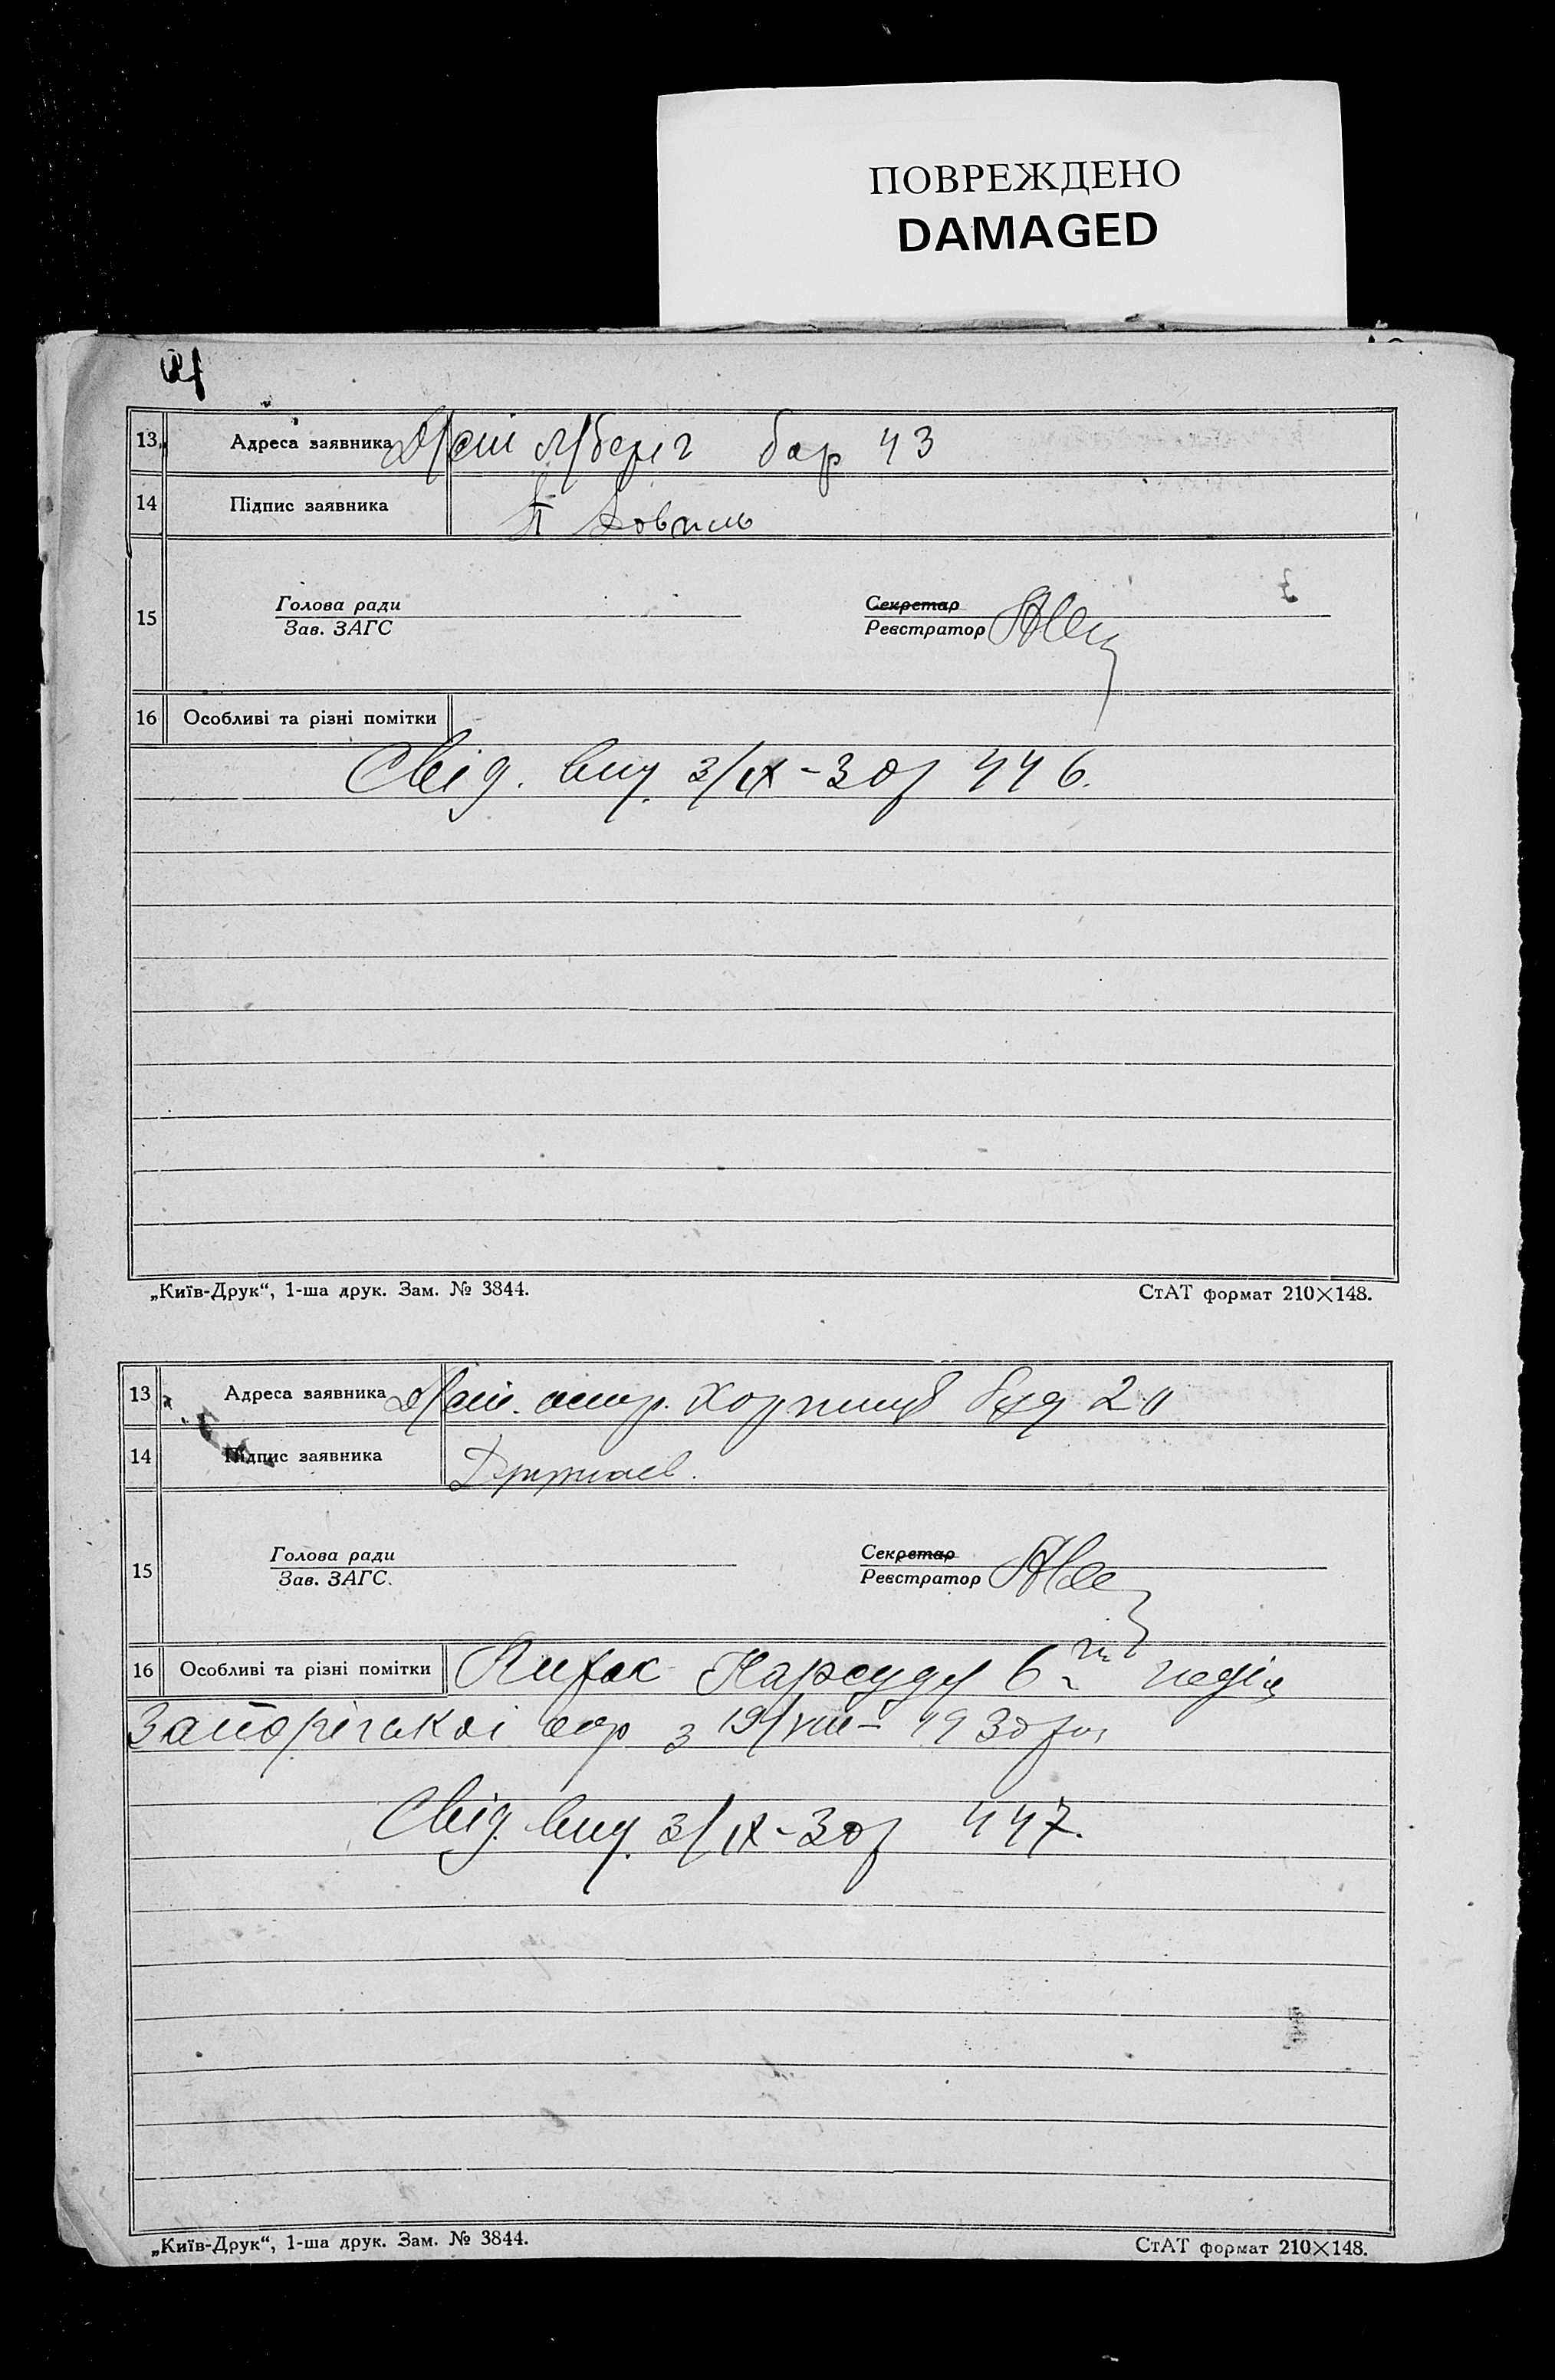 ПОВРЕЖДЕНО
DAMAGED
13 Адреса заявника Д/ст л/беріг бар 43
14 Підпис заявника П Ковпль
15 Голова ради
Зав. ЗАГС
Секретар
Реєстратор
16 Особливі та різні помітки
Свід. вид. 3/ІХ-30 р 446.
„Київ-Друк“, 1-ша друк. Зам. № 3844.
СтАТ формат 210×148.
13 Адреса заявника Д/ст. остр. Хортиця буд 20
14 Підпис заявника
15 Голова ради
Зав. ЗАГС.
Секретар
Реєстратор
16 Особливі та різні помітки Нарсуду 6
Запорізької окр з 19/VIII-1930 р
Свід. вид. 3/ІХ-30 р 447.
„Київ-Друк“, 1-ша друк. Зам. № 3844.
СтАТ формат 210×148.